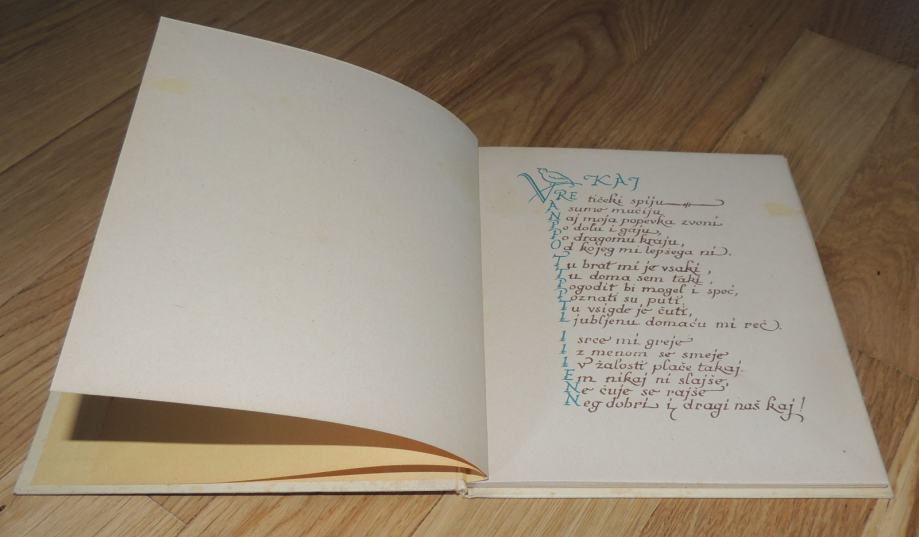 KAJ
VRE tičeki spiju
A sume mučiju,
Naj moja popevka zvoni
Po dolu i gaju,
Po dragomu kraju,
Od kojeg mi lepšega ni.
Tu brat mi je vsaki,
Tu doma sem taki,
Pogodit bi mogel i speč,
Poznati su puti,
Tu vsigde je čuti,
Ljubljenu domaču mi reč.
I srce mi greje
I z menom se smeje
I v žalosti plače takaj.
Em nikaj ni slajše,
Ne čuje se rajše
Neg dobri i dragi naš kaj!